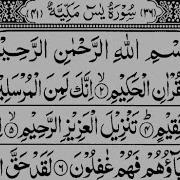 (٣٦) سُوْرَةُ يٰسٓ مَكِّيَّةٌ (٤١)
سْمِ اللهِ الرَّحْمٰنِ الرَّحِيْ
قُرْاٰنِ الْحَكِيْمِ ﴿٢﴾ اِنَّكَ لَمِنَ الْمُرْسَلِيْ
قِيْمٍ ﴿٤﴾ تَنْزِيْلَ الْعَزِيْزِ الرَّحِيْمِ ﴿٥﴾
بَآؤُهُمْ فَهُمْ غٰفِلُوْنَ ﴿٦﴾ لَقَدْ حَقَّ ا